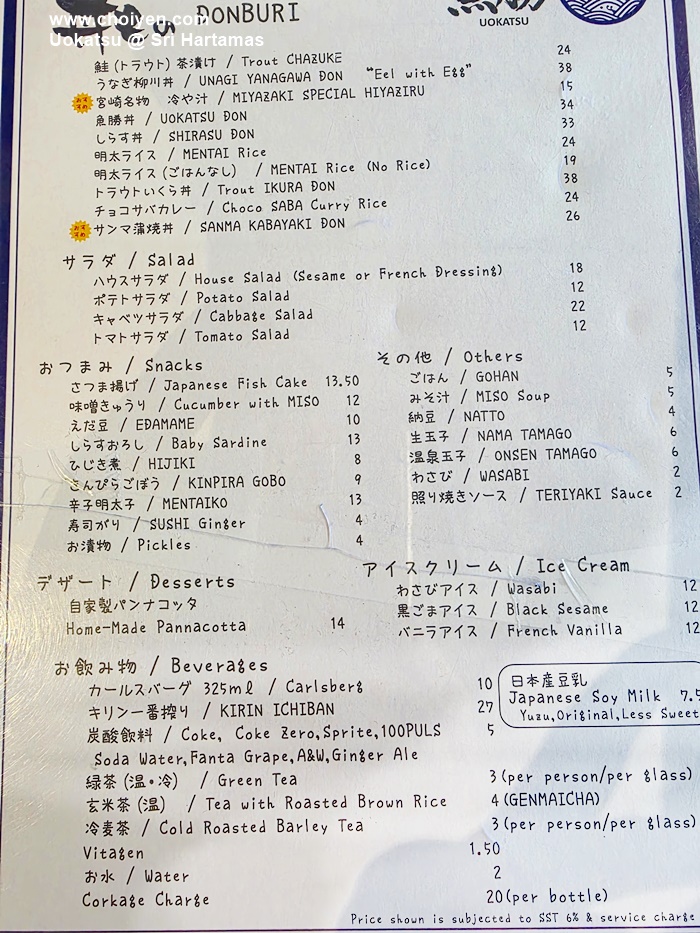 www.choiyen.com
Uokatsu @ Sri Hartamas
の DONBURI
UOKATSU
鮭(トラウト)茶漬け / Trout CHAZUKE 24
うなぎ柳川丼 / UNAGI YANAGAWA DON "Eel with Egg" 38
おすすめ 宮崎名物 冷や汁 / MIYAZAKI SPECIAL HIYAZIRU 15
魚勝丼 / UOKATSU DON 34
しらす丼 / SHIRASU DON 33
明太ライス / MENTAI Rice 24
明太ライス(ごはんなし) / MENTAI Rice (No Rice) 19
トラウトいくら丼 / Trout IKURA DON 38
チョコサバカレー / Choco SABA Curry Rice 24
おすすめ サンマ蒲焼丼 / SANMA KABAYAKI DON 26
サラダ / Salad
ハウスサラダ / House Salad (Sesame or French Dressing) 18
ポテトサラダ / Potato Salad 12
キャベツサラダ / Cabbage Salad 22
トマトサラダ / Tomato Salad 12
おつまみ / Snacks
さつま揚げ / Japanese Fish Cake 13.50
味噌きゅうり / Cucumber with MISO 12
えだ豆 / EDAMAME 10
しらすおろし / Baby Sardine 13
ひじき煮 / HIJIKI 8
きんぴらごぼう / KINPIRA GOBO 9
辛子明太子 / MENTAIKO 13
寿司がり / SUSHI Ginger 4
お漬物 / Pickles 4
その他 / Others
ごはん / GOHAN 5
みそ汁 / MISO Soup 5
納豆 / NATTO 4
生玉子 / NAMA TAMAGO 6
温泉玉子 / ONSEN TAMAGO 6
わさび / WASABI 2
照り焼きソース / TERIYAKI Sauce 2
デザート / Desserts
自家製パンナコッタ
Home-Made Pannacotta 14
アイスクリーム / Ice Cream
わさびアイス / Wasabi 12
黒ごまアイス / Black Sesame 12
バニラアイス / French Vanilla 12
お飲み物 / Beverages
カールスバーグ 325ml / Carlsberg 10
キリン一番搾り / KIRIN ICHIBAN 27
炭酸飲料 / Coke, Coke Zero,Sprite,100PULS 5
Soda Water,Fanta Grape,A&W,Ginger Ale
緑茶(温・冷) / Green Tea 3(per person/per glass)
玄米茶(温) / Tea with Roasted Brown Rice 4(GENMAICHA)
冷麦茶 / Cold Roasted Barley Tea 3(per person/per glass)
Vitagen 1.50
お水 / Water 2
Corkage Charge 20(per bottle)
日本産豆乳
Japanese Soy Milk 7.5
Yuzu,Original,Less Sweet
Price shown is subjected to SST 6% & service charge